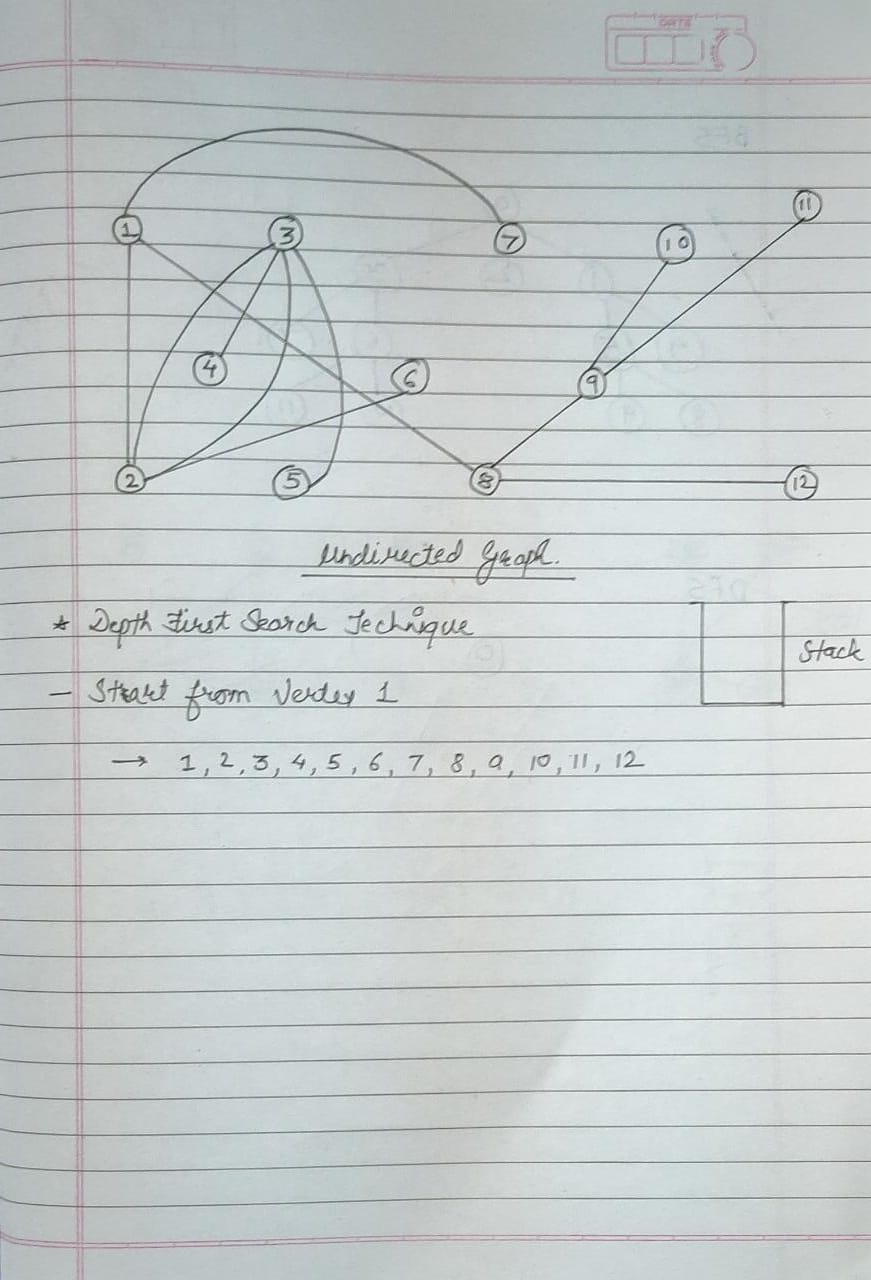 DATE
1 3 7 10 11
4 6 9
2 5 8 12
Undirected Graph.
* Depth First Search Technique
Stack
- Start from Vertex 1
→ 1, 2, 3, 4, 5, 6, 7, 8, 9, 10, 11, 12